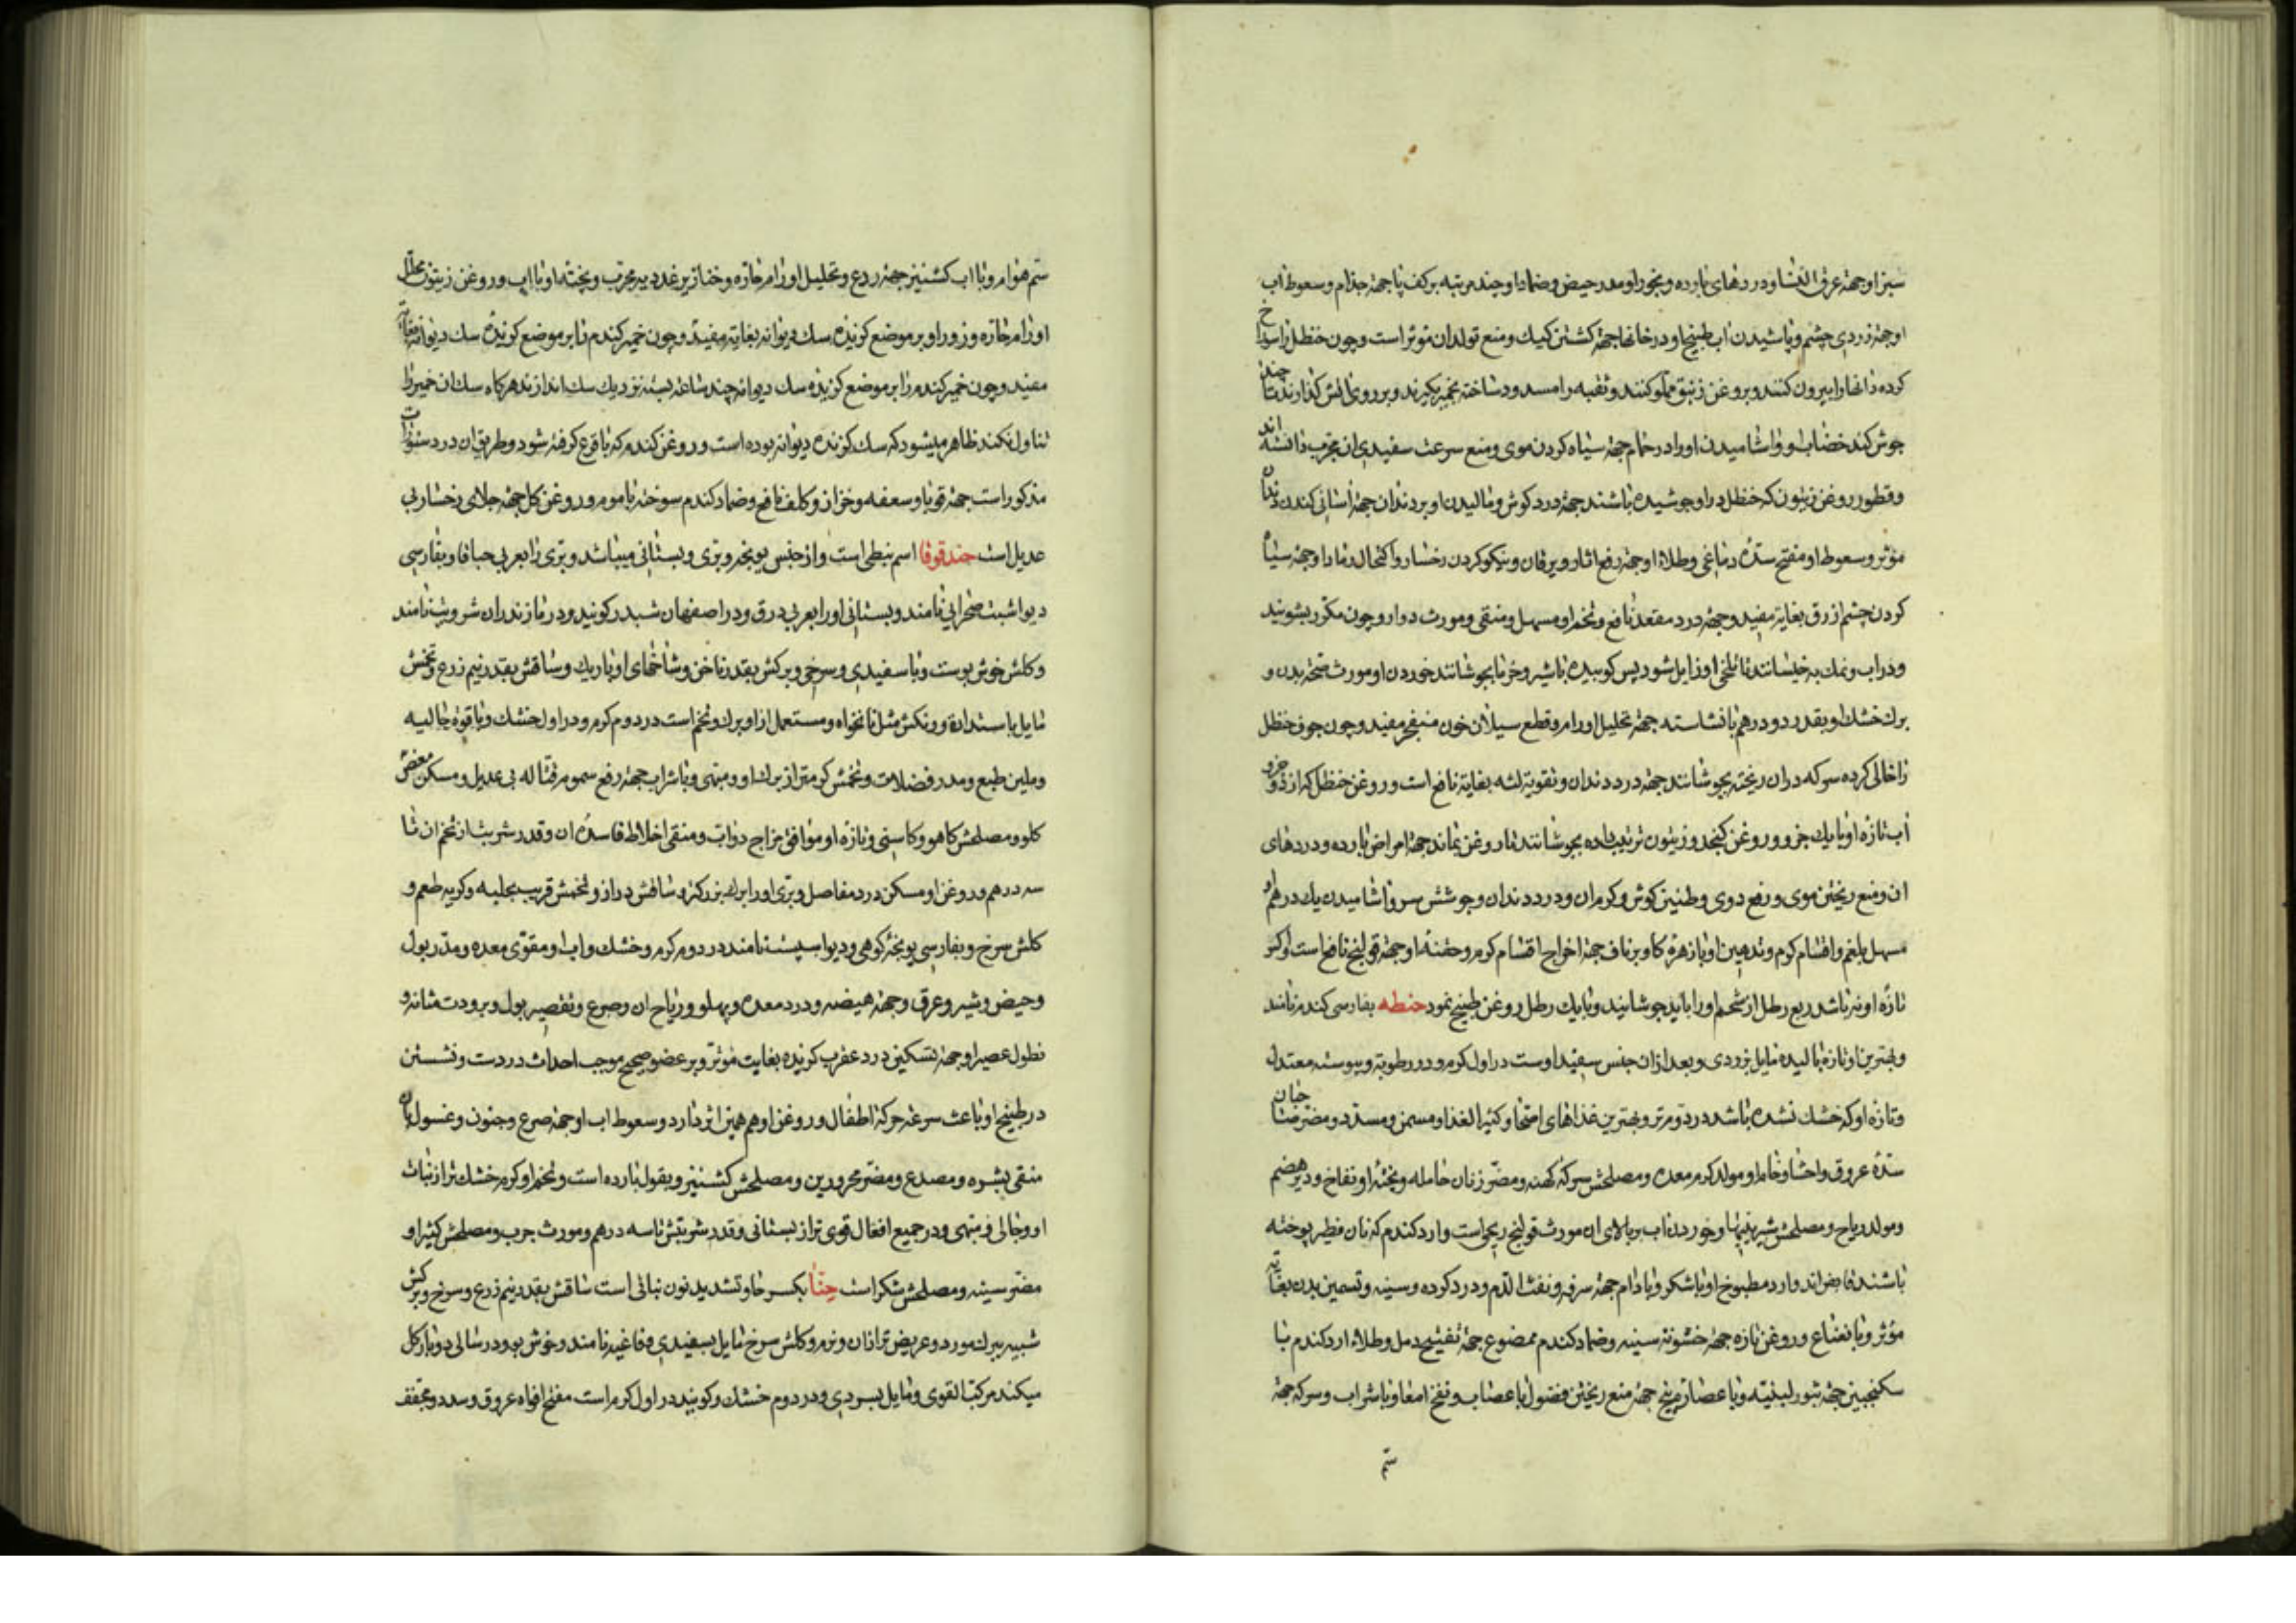 سبز او جهة عرق النسا و دردهای بارده و بخور او مدر حیض و ضماد او چند مرتبه بر کف پا جهة جذام و سعوط آب
او جهة زردی چشم و پاشیدن آب طبیخ او در خانها جهة کشتن کیک و منع تولد ان موثر است و چون حنظل را سوراخ
کرده دانها را بیرون کنند و بروغن زنبق مملو کنند و ثقبه را مسدود ساخته بخمیر بگیرند و بر روی آتش گذارند تا چند
جوش کند خضاب او و اشامیدن او در حمام جهة سیاه کردن موی و منع سرعت سفیدی ان مجرب دانسته اند
و قطور روغن زیتون که حنظل در او جوشیده باشند جهة درد کوش و مالیدن او بر دندان جهة آسانی کندن دندان
مؤثر و سعوط او مفتح سدهٔ دماغی و طلاء او جهة رفع اثار و یرقان و نیکو کردن رخسار و اکتحال رماد او جهة سیاه
کردن چشم ازرق بغایة مفید و جهة درد مقعد نافع و تخم او مسهل و منقی و مورث دوار و چون مکرر بشویند
و در اب و نمک به خیسانند تا تلخی او زایل شود پس کوبیده با شیر و خرما بجوشانند خوردن او مورث صحة بدن و
برک خشک او بقدر دو درهم با نشاسته جهة تحلیل اورام و قطع سیلان خون منفجر مفید و چون جوف حنظل
را خالی کرده سرکه در ان ریخته بجوشانند جهة درد دندان و تقویة لثه بغایة نافع است و روغن حنظل که از دو جزو
آب تازه او با یک جزو روغن کنجد و زیتون ترتیب داده بجوشانند تا روغن بماند جهة امراض بارده و دردهای
ان و منع ریختن موی و رفع دوی و طنین کوش و کرمان و درد دندان و جوشش سر و اشامیدن یک درهم او
مسهل بلغم و اقسام کرم و تدهین او با زهرهٔ کاو بر ناف جهة اخراج اقسام کرم و حقنهٔ او جهة قولنج نافع است و اکر
تازهٔ او نه باشد ربع رطل از شحم او را باید جوشانید و با یک رطل روغن طبیخ نمود حنطه بفارسی کندم نامند
و بهترین او تازه بالیده مایل بزردی و بعد ازان جنس سفید اوست در اول کرم و در رطوبة و یبوسته معتدل
و تازه او که خشک نشده باشد در دوم تر و بهترین غذاهای اصحا و کثیر الغذا و مسمن و مسدد و مضر صاحبان
سدهٔ عروق و احشا و خام او مولد کرم معده و مصلحش سرکهٔ کهنه و مضر زنان حامله و پختهٔ او نفاخ و دیر هضم
و مولد ریاح و مصلحش شیرینیها و خوردن اب بر بالای ان مورث قولنج ریحی است و ارد کندم که نان فطیر پوخته
باشند قابض اند و ارد مطبوخ او با شکر و بادام جهة سرفه و نفث الدم و درد کرده و سینه و تسمین بدن بغایة
مؤثر و با نعناع و روغن تازه جهة خشونة سینه و ضماد کندم ممضوغ جهة تفتیح دمل و طلاء ارد کندم با
سکنجبین جهة بثور لبنیه و با عصاره بنج جهة منع ریختن فضول باعصاب و نفخ امعا و با شراب و سرکه جهة
سم
سم هوام و با اب کشنیز جهة ردع و تحلیل اورام حاره و خنازیر غددیه مجرب و پختهٔ او با اب و روغن زیتون محلل
اورام حاره و زرور او بر موضع کزیده سک دیوانه بغایة مفید و چون خمیر کندم را بر موضع کزیدهٔ سک دیوانه بغایة
مفید و چون خمیر کندم را بر موضع کزیدهٔ سک دیوانه چند ساعة بسته نزدیک سک اندازند هرکاه سک ان خمیر را
تناول نکند ظاهر میشود که سک کزنده دیوانه بوده است و روغن کندم که با قرع کرفته شود و طریق ان در دستورات
مذکور است جهة قوبا و سعفه و خزاز و کلف نافع و ضماد کندم سوخته با موم و روغن کل جهة جلای رخسار بی
عدیل است حندقوقا اسم نبطی است و از جنس یونجه و بری و بستانی میباشد و بری را بعربی حباقا و بفارسی
دیو اشبت صحرایی نامند و بستانی او را بعربی درق و در اصفهان شبدر کویند و در مازندران شروشت نامند
و کلش خوش بوست و با سفیدی و سرخی و برکش بقدر ناخن و شاخهای او باریک و ساقش بقدر نیم زرع و تخمش
مایل باستداره و رنکش مثل نانخواه و مستعمل از او برک و تخم است در دوم کرم و در اول خشک و با قوة جالیه
و ملین طبع و مدر فضلات و تخمش کرمتر از برک او و مبهی و با شراب جهة رفع سموم قتاله بی عدیل و مسکن مغص
کلو و مصلحش کاهو و کاسنی و تازهٔ او موافق مزاج دواب و منقی اخلاط فاسدهٔ ان و قدر شربت از تخم ان تا
سه درهم و روغن او مسکن درد مفاصل و بری او را برک بزرکتر و ساقش دراز و تخمش قریب بحلبه و کریه طعم و
کلش سرخ و بفارسی یونجهٔ کوهی و دیو اسپست نامند در دوم کرم و خشک و اب او مقوی معده و مدر بول
و حیض و شیر و عرق و جهة هیضه و درد معده و پهلو و ریاح ان و صرع و تقصیر بول و برودت مثانه و
نطول عصیر او جهة تسکین درد عقرب کزیده بغایت موثر و بر عضو صحیح موجب احداث درد است و نشستن
در طبیخ او باعث سرعة حرکة اطفال و روغن او هم همین اثر دارد و سعوط اب او جهة صرع و جنون و غسول بان
منقی بشره و مصدع و مضر محرورین و مصلحش کشنیز و بقول بارده است و تخم او کرم خشک تر از نبات
او و جالی و مبهی و در جمیع افعال قوی تر از بستانی و قدر شربتش تا سه درهم و مورث جرب و مصلحش کثیرا و
مضر سینه و مصلحش شکر است حنّا بکسر حا و تشدید نون نباتی است ساقش بقدر نیم زرع و سرخ و برکش
شبیه ببرک مورد و عریض تر از ان و نرم و کلش سرخ مایل بسفیدی و فاغیه نامند و خوش بو و در سالی دو بار کل
میکند مرکب القوی و مایل بسردی و در دوم خشک و کویند در اول کرم است مفتح افواه عروق و سدد و مجفف